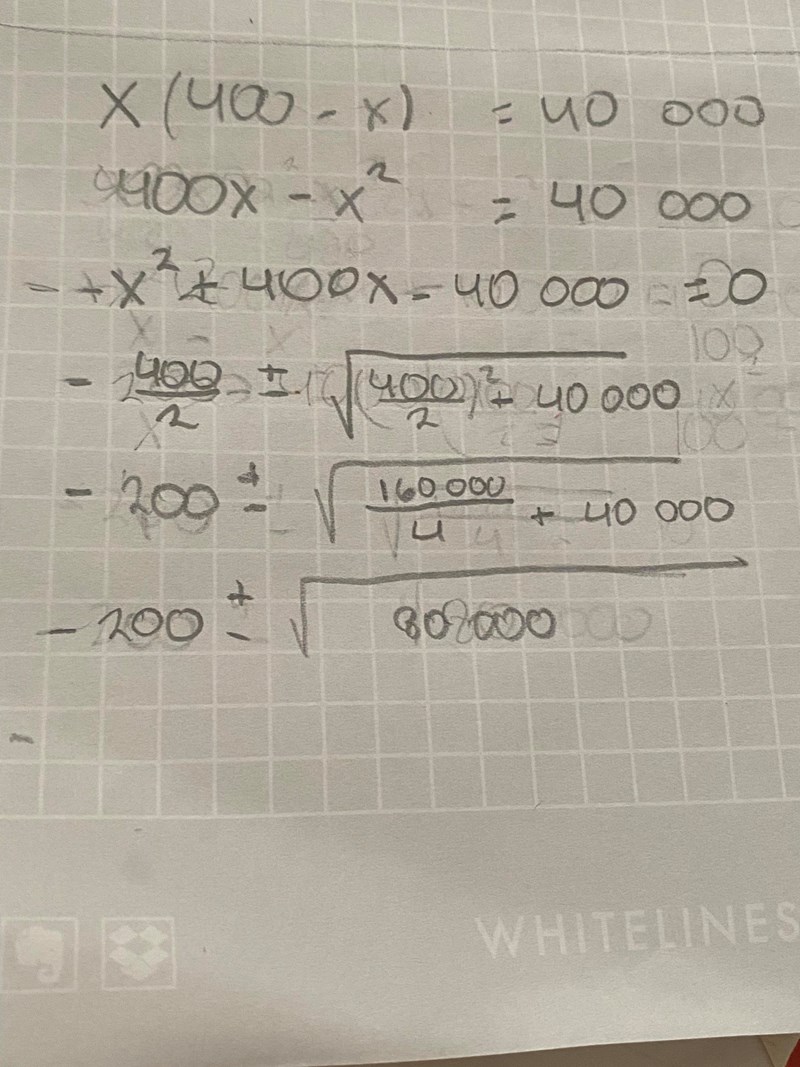 x(400 - x) = 40 000
400x - x² = 40 000
- + x² + 400x - 40 000 = 0
- 400/2 ± √(400/2)² + 40 000
- 200 ± √160 000/4 + 40 000
- 200 ± √80 000
-
WHITELINES